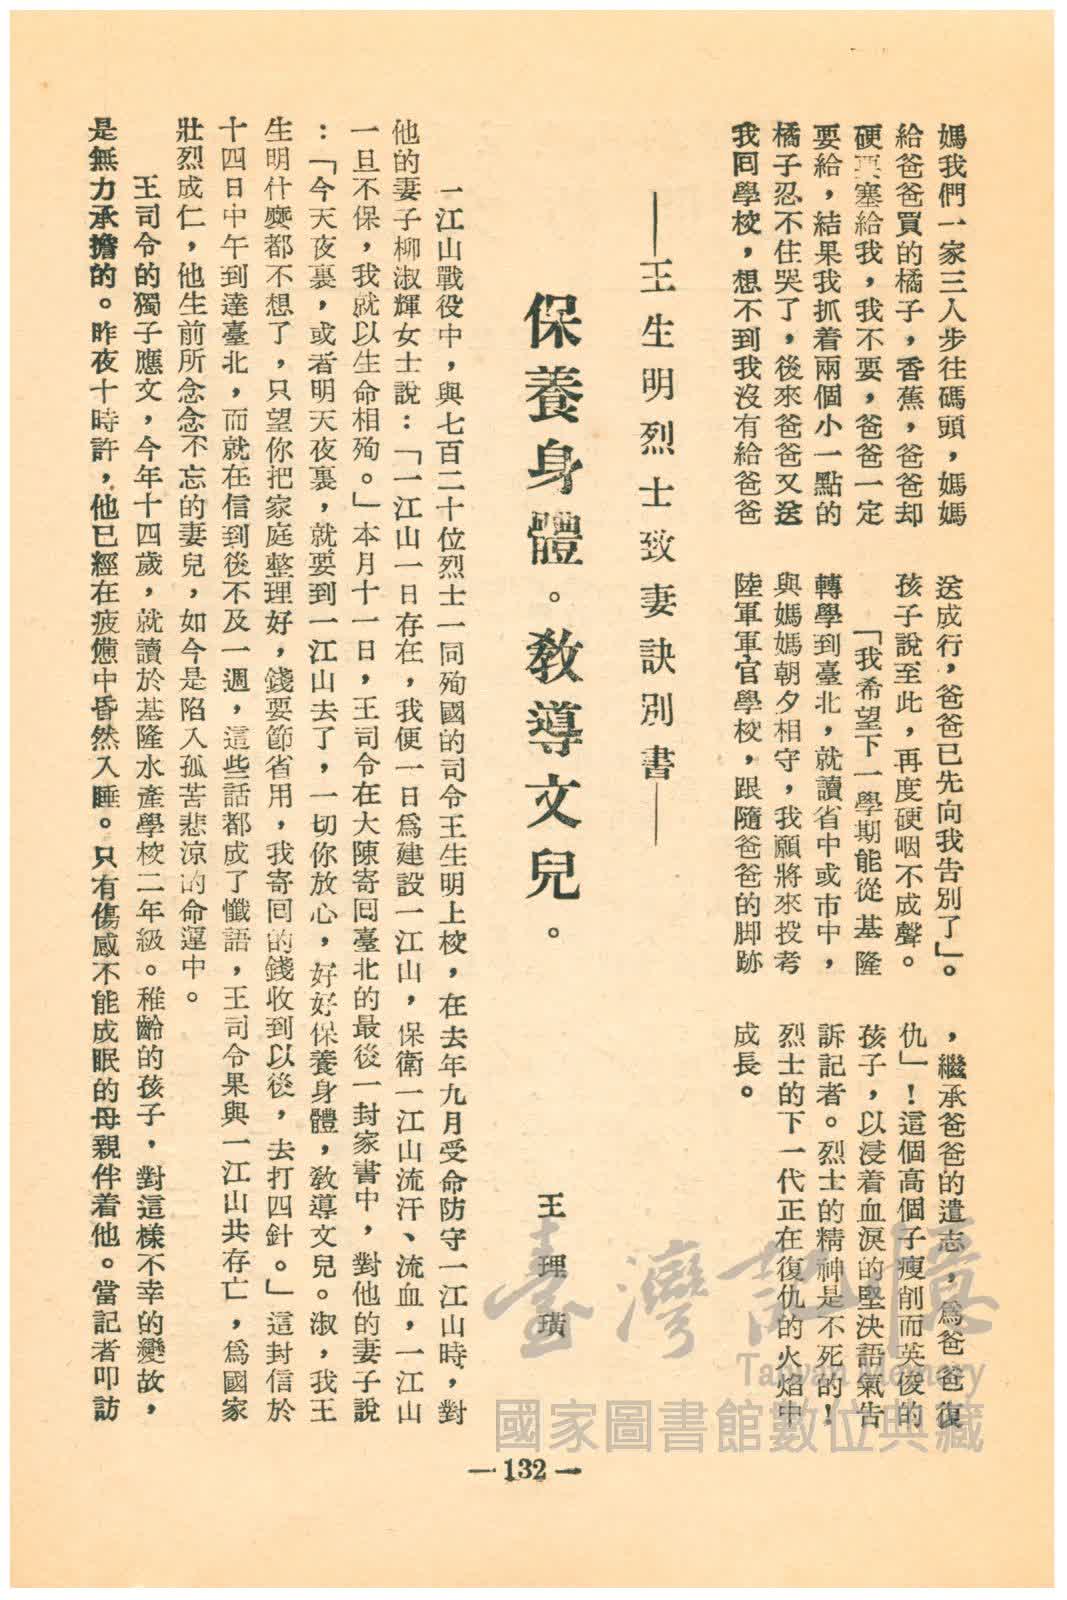 媽我們一家三人步往碼頭，媽媽
給爸爸買的橘子，香蕉，爸爸却
硬要塞給我，我不要，爸爸一定
要給，結果我抓着兩個小一點的
橘子忍不住哭了，後來爸爸又送
我囘學校，想不到我沒有給爸爸
送成行，爸爸已先向我告別了」。
孩子說至此，再度硬咽不成聲。
「我希望下一學期能從基隆
轉學到臺北，就讀省中或市中，
與媽媽朝夕相守，我願將來投考
陸軍軍官學校，跟隨爸爸的脚跡
，繼承爸爸的遺志，爲爸爸復
仇」！這個高個子瘦削而英俊的
孩子，以浸着血淚的堅決語氣告
訴記者。烈士的精神是不死的！
烈士的下一代正在復仇的火焰中
成長。
——王生明烈士致妻訣別書——
保養身體。敎導文兒。
王理璜
一江山戰役中，與七百二十位烈士一同殉國的司令王生明上校，在去年九月受命防守一江山時，對
他的妻子柳淑輝女士說：「一江山一日存在，我便一日爲建設一江山，保衛一江山流汗、流血，一江山
一旦不保，我就以生命相殉。」本月十一日，王司令在大陳寄囘臺北的最後一封家書中，對他的妻子說
：「今天夜裏，或者明天夜裏，就要到一江山去了，一切你放心，好好保養身體，敎導文兒。淑，我王
生明什麽都不想了，只望你把家庭整理好，錢要節省用，我寄囘的錢收到以後，去打四針。」這封信於
十四日中午到達臺北，而就在信到後不及一週，這些話都成了懺語，王司令果與一江山共存亡，爲國家
壯烈成仁，他生前所念念不忘的妻兒，如今是陷入孤苦悲涼的命運中。
王司令的獨子應文，今年十四歲，就讀於基隆水產學校二年級。稚齡的孩子，對這樣不幸的變故，
是無力承擔的。昨夜十時許，他已經在疲憊中昏然入睡。只有傷感不能成眠的母親伴着他。當記者叩訪
—132—
臺灣記憶
Taiwan Memory
國家圖書館數位典藏